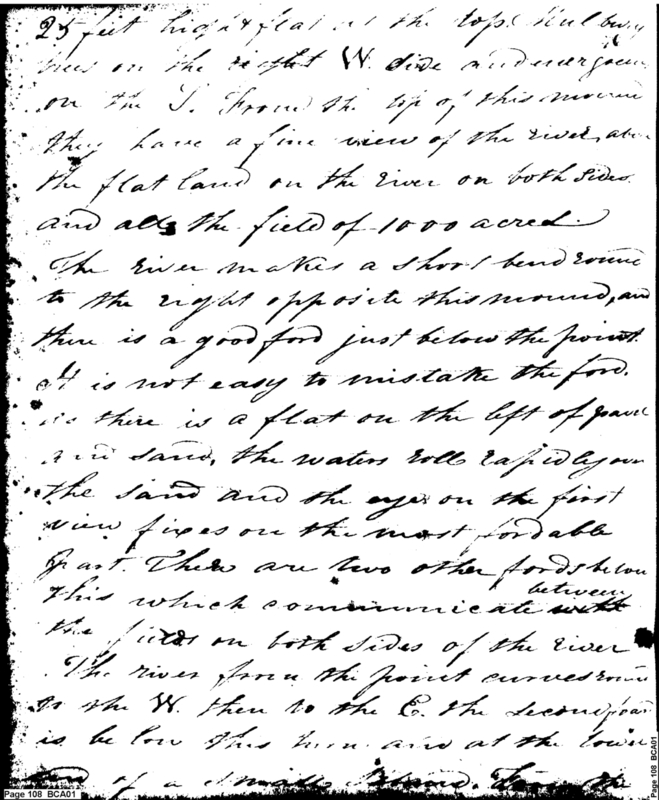 25 feet high & flat at the top. Mulbury
trees on the right W. side and evergreen
on the S. From the top of this mound
they have a fine view of the river, abov
the flat land on the river on both sides
and all the field of 1000 acres.
The river makes a short bend round
to the right opposite this mound, and
there is a good ford just below the point.
It is not easy to mistake the ford.
as there is a flat on the left of gravel
and sand, the waters roll rapidly over
the sand and the eye on the first
view fixes on the most fordable
part. There are two other fords below
this which communicate with between
the fields on both sides of the river
The river from the point curves round
to the W. then to the E. the second ford
is below this turn and at the lower
end of a small Island. From the
Page 108 BCA01
Page 108 BCA01